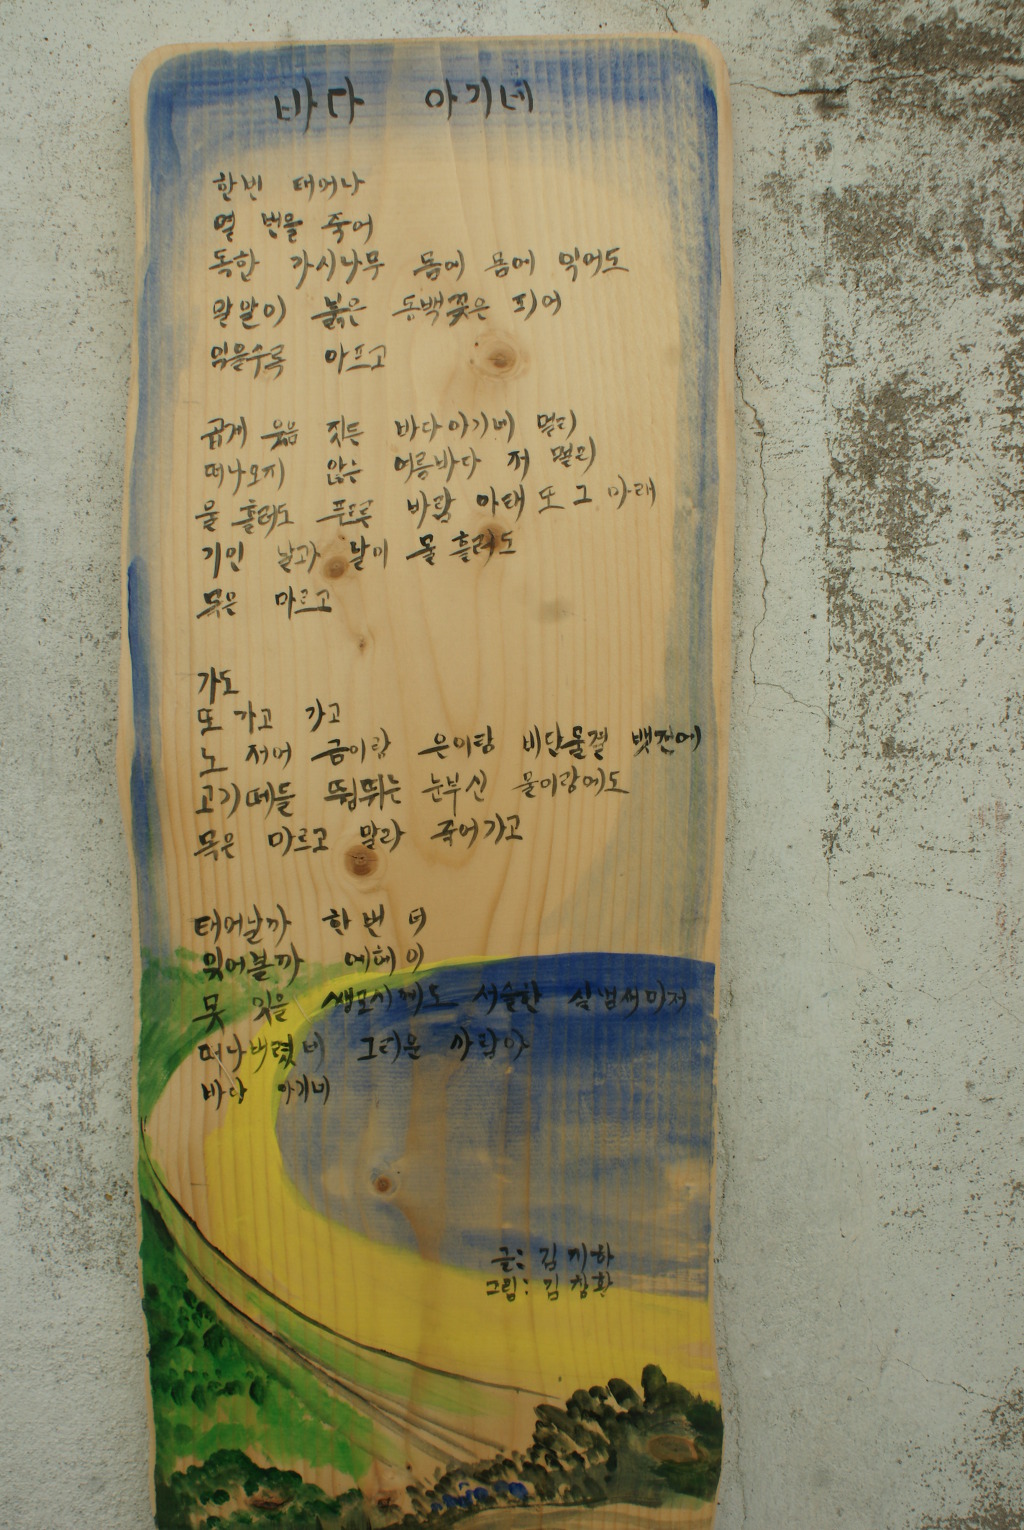 바다 아기네
한번 태어나
열 번을 죽어
독한 가시나무 몸에 몸에 익어도
알알이 붉은 동백꽃은 피어
잊을수록 아프고
곱게 웃음 짓든 바다아기네 멀리
떠나오지 않는 여름바다 저 멀리
물 흘러도 푸르른 바람 아래 또 그 아래
기인 날과 날이 물 흘러도
목은 마르고
가도
또 가고 가고
노 저어 금이랑 은이랑 비단물결 뱃전에
고기떼들 뜀뛰는 눈부신 물이랑에도
목은 마르고 말라 죽어가고
태어날까 한 번 더
잊어볼까 에헤이
못 잊을 서슬한 살냄새미저
떠나버렸네 그리운 사람아
바다 아기네
글: 김지하
그림: 김창환